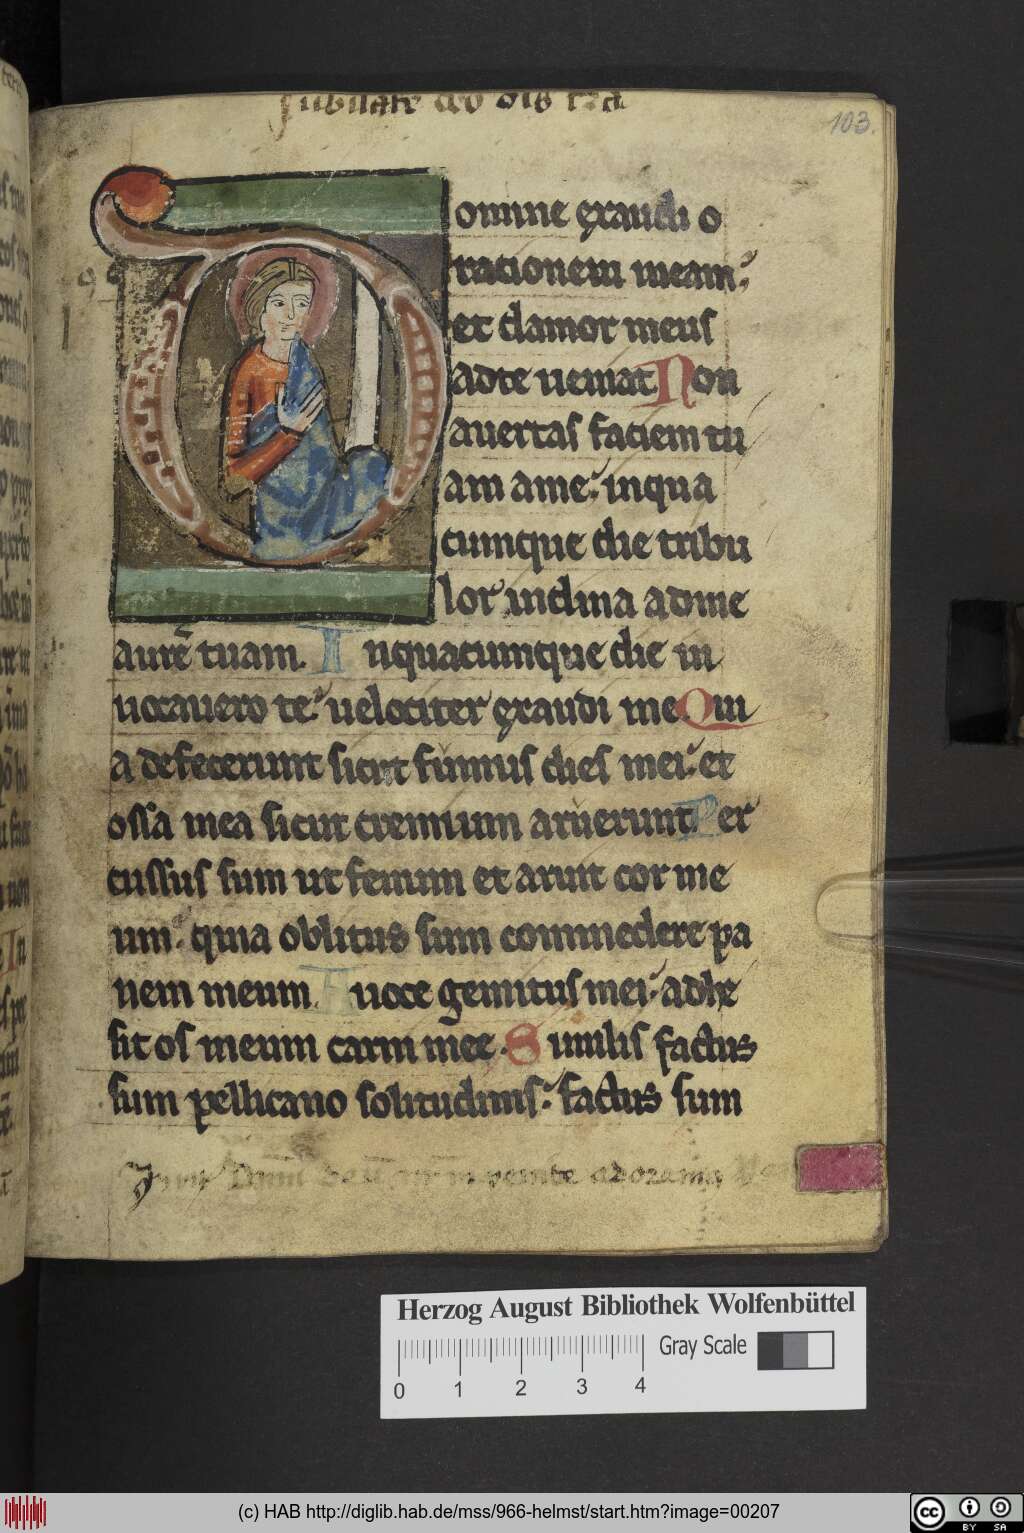 Iubilate deo o̅is t̅ra
103.
Domine exaudi o
rationem meam:
et clamor meus
ad te veniat Non
avertas faciem tu
am a me: in qua
cumque die tribu
lor inclina ad me
aurē tuam. In quacumque die in
vocavero te: velociter exaudi me Qui
a defecerunt sicut fumus dies mei: et
ossa mea sicut cremium aruerunt Per
cussus sum ut fenum et aruit cor me
um: quia oblitus sum commedere pa
nem meum A voce gemitus mei: adhe
sit os meum carni mee. Similis factus
sum pellicano solitudinis: factus sum
venite adoremus
Herzog August Bibliothek Wolfenbüttel
Gray Scale
0 1 2 3 4
(c) HAB http://diglib.hab.de/mss/966-helmst/start.htm?image=00207
cc BY SA